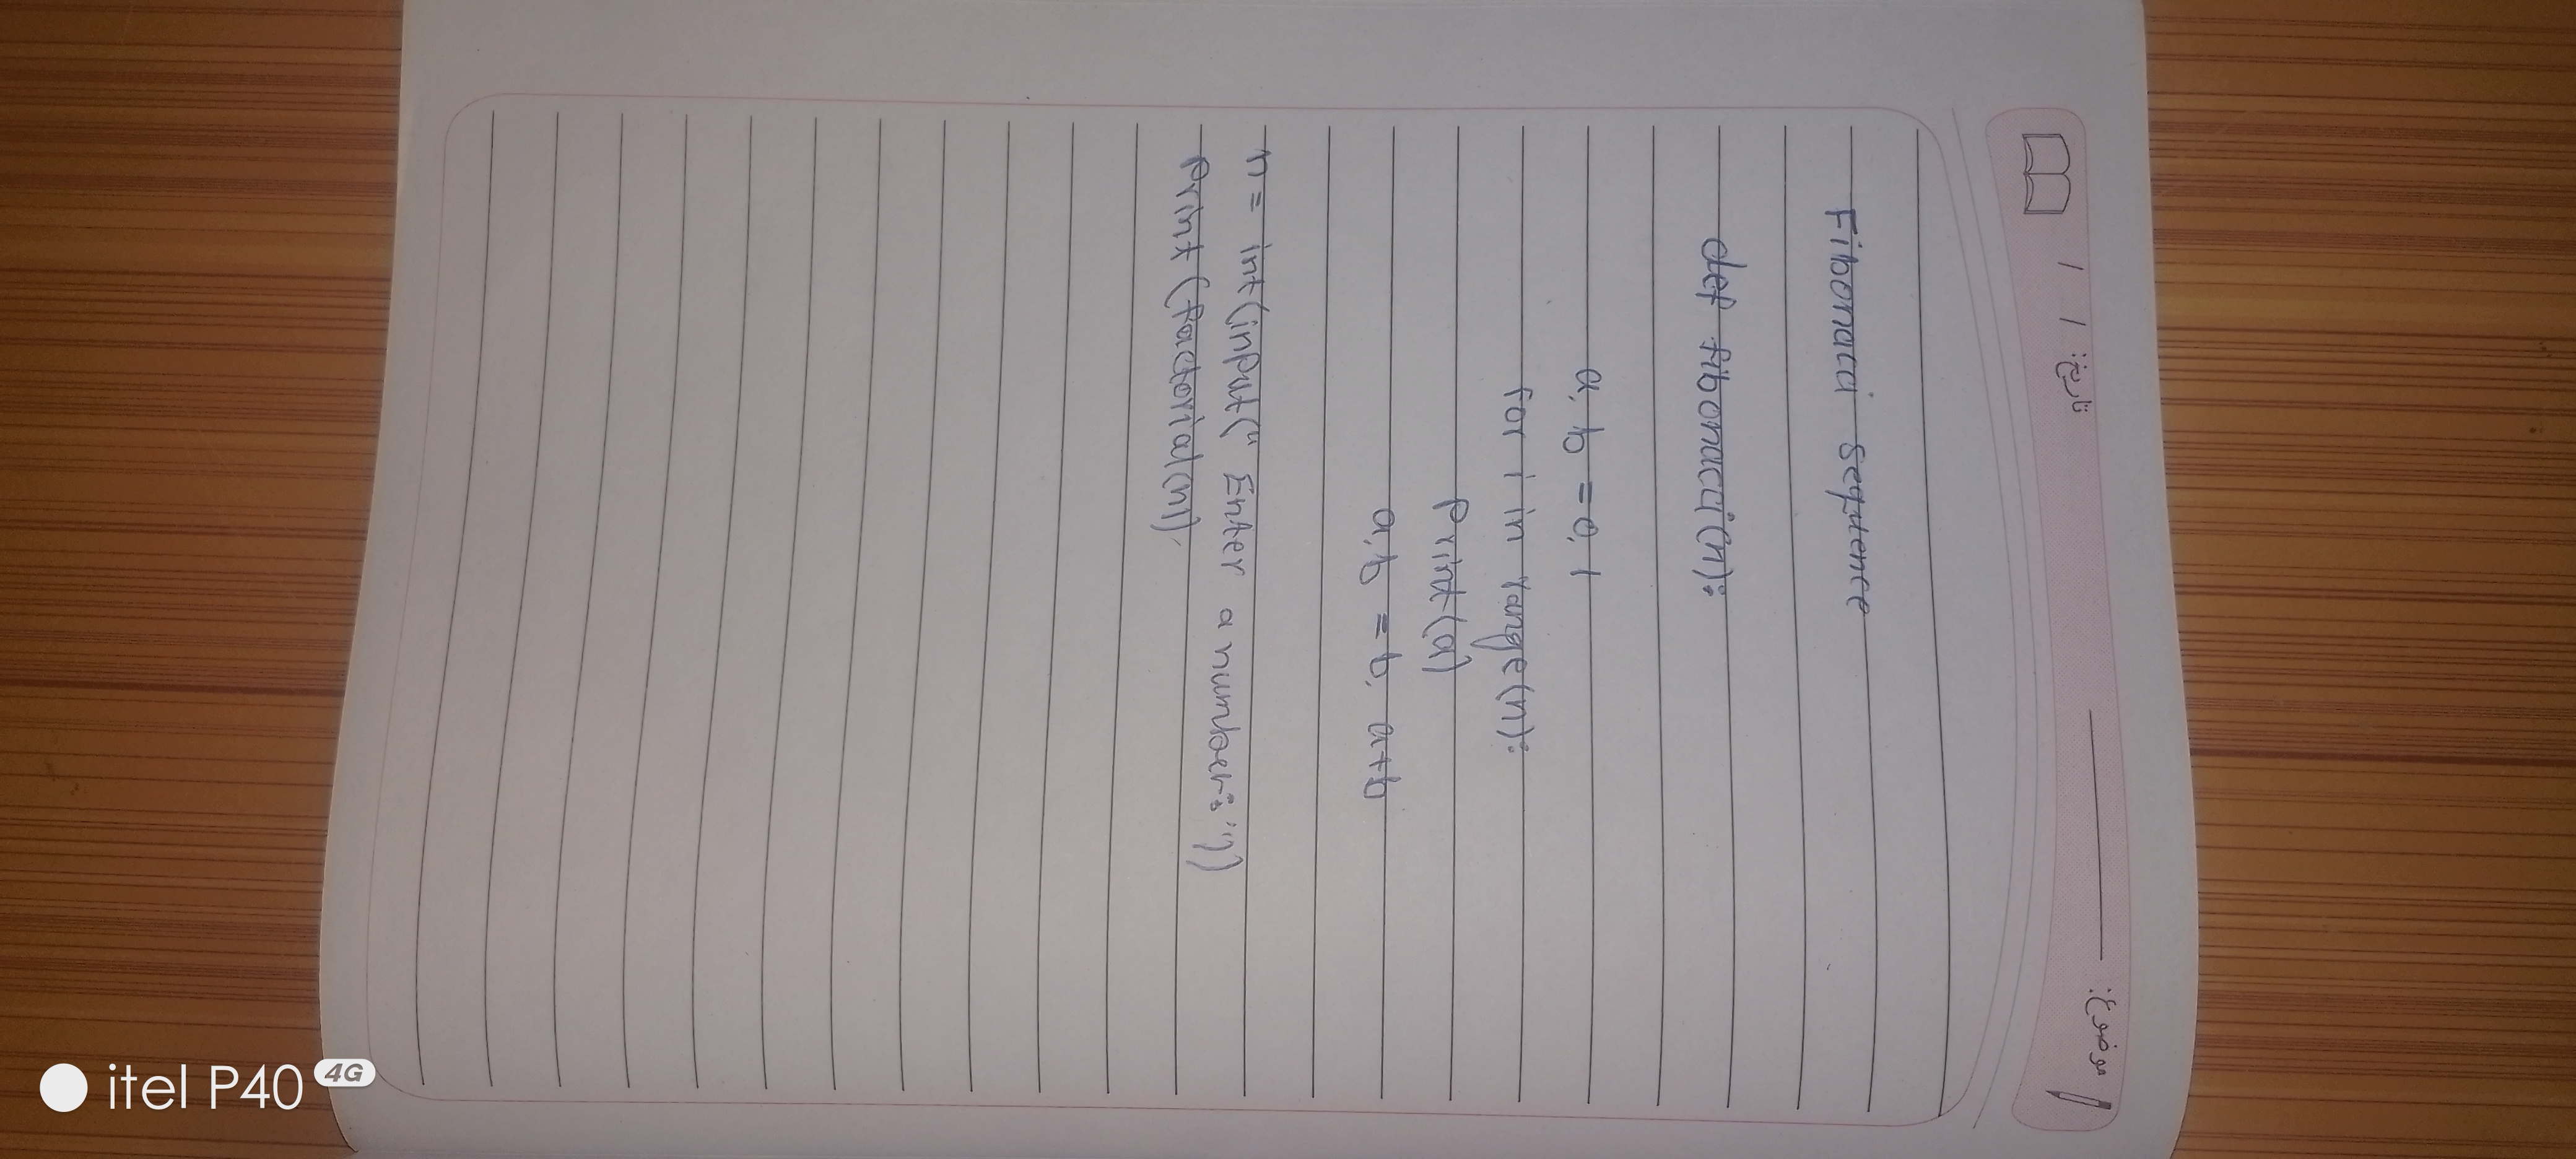 تاریخ: / /
موضوع:
Fibonacci Sequence
def fibonacci(n):
a, b = 0, 1
for i in range(n):
Print(a)
a,b = b, a+b
n= int(input(" Enter a number:"))
Print(factorial(n))
itel P40 4G